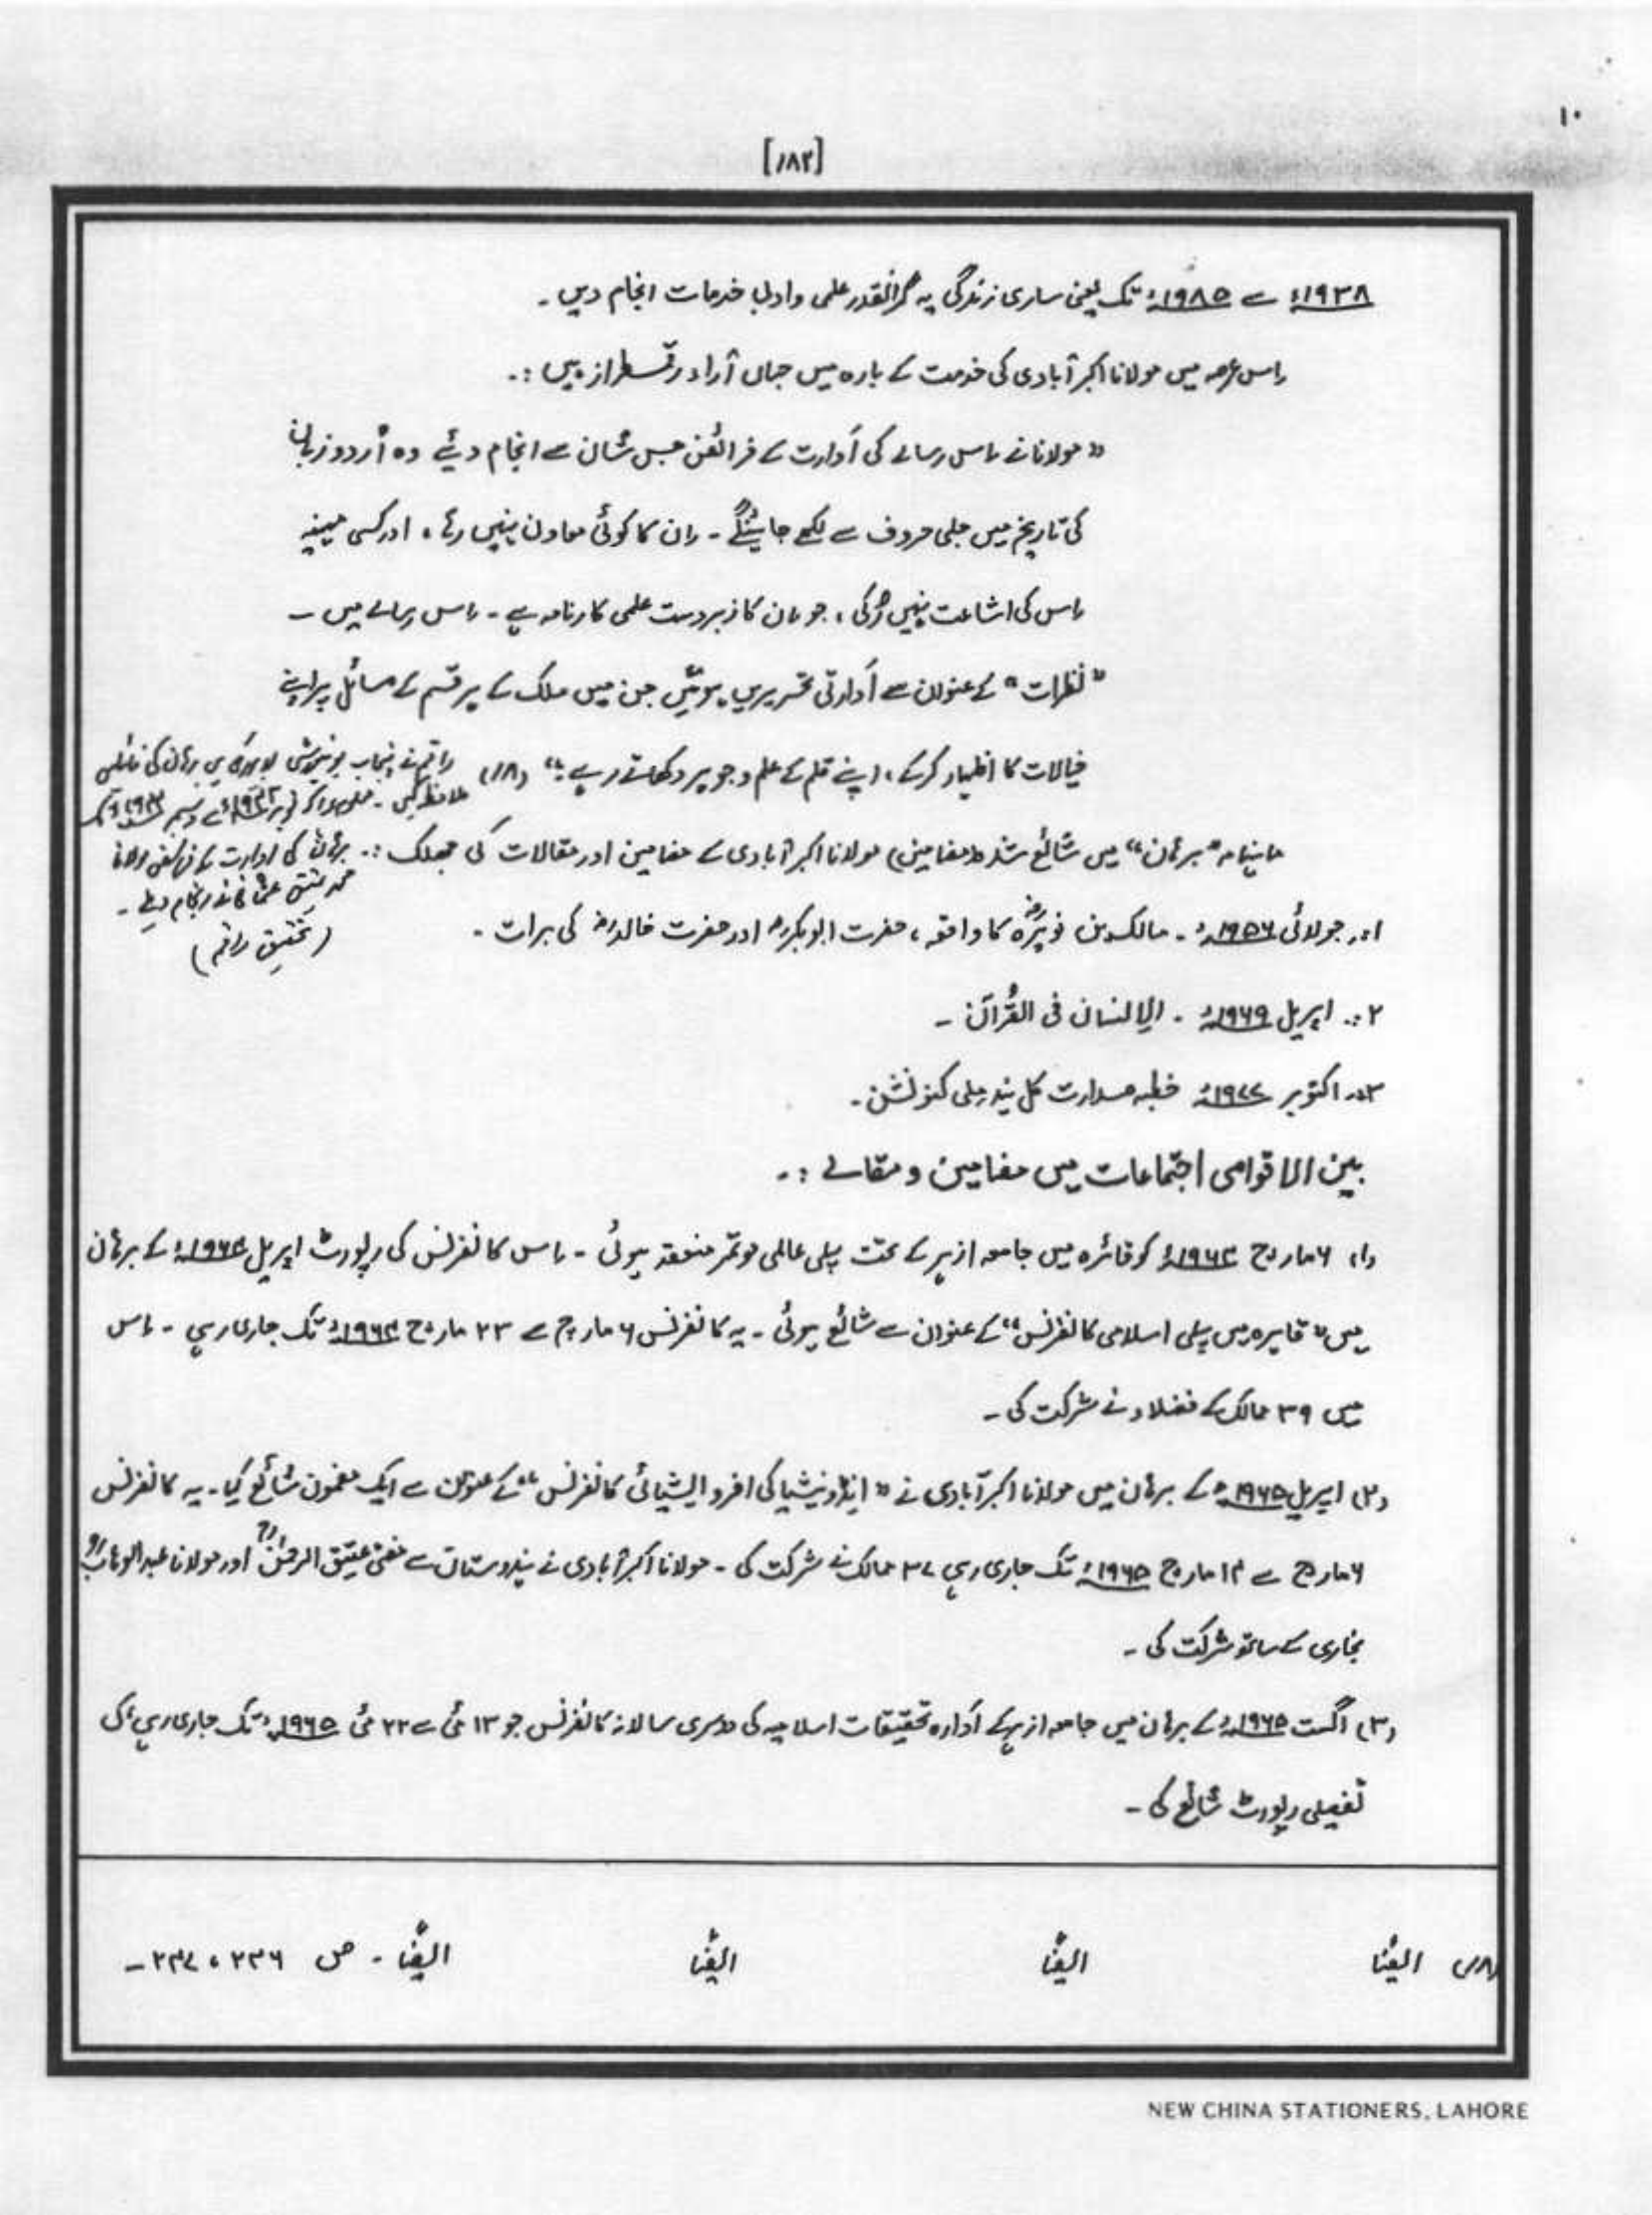 ۱۰
[۱۸۲]
۱۹۳۸ء سے ۱۹۸۵ء تک یعنی ساری زندگی یہ گرانقدر علمی و ادبی خدمات انجام دیں ۔
اس عرصہ میں مولانا اکبر آبادی کی خدمت کے بارہ میں جہاں آراء رقمطراز ہیں :.
" مولانا نے اس رسالے کی اَدارت کے فرائض جس شان سے انجام دیئے وہ اُردو زبان
کی تاریخ میں جلی حروف سے لکھے جائینگے ۔ ان کا کوئی معاون نہیں رہا ، اور کسی مہینہ
اس کی اشاعت نہیں رُکی ، جو ان کا زبردست علمی کارنامہ ہے ۔ اس رسالے میں ۔
" نظرات " کے عنوان سے اَدارتی تحریریں ہوتیں جن میں ملک کے ہر قسم کے مسائل پر اپنے
خیالات کا اظہار کرکے ، اپنے قلم کے علم و جوہر دکھاتے رہے ؛" (۱۸)
راقم نے پنجاب یونیورسٹی لائبریری میں برہان کی فائلیں
ملاحظہ کیں ۔ دسمبر تک
برہان کی ادارت کے فرائض مولانا
عتیق عثمانی نے انجام دیئے ۔
(تحقیق راقم)
ماہنامہ "برہان" میں شائع شدہ (مضامین) مولانا اکبر آبادی کے مضامین اور مقالات کی جھلک :.
۱:. جولائی ۱۹۵۶ء ۔ مالک بن نویرہ کا واقعہ ، حضرت ابوبکرؓ اور حضرت خالدؓ کی برات ۔
۲:. اپریل ۱۹۶۹ء ۔ الانسان فی القُرآن ۔
۳:. اکتوبر ۱۹۷۷ء خطبہ صدارت کل ہند ملی کنونشن ۔
بین الاقوامی اجتماعات میں مضامین و مقالے :.
(۱) ۶ مارچ ۱۹۶۴ء کو قاہرہ میں جامعہ ازہر کے تحت پہلی عالمی موتمر منعقد ہوئی ۔ اس کانفرنس کی رپورٹ اپریل ۱۹۶۴ء کے برہان
میں " قاہرہ میں پہلی اسلامی کانفرنس " کے عنوان سے شائع ہوئی ۔ یہ کانفرنس ۶ مارچ سے ۲۳ مارچ ۱۹۶۴ء تک جاری رہی ۔ اس
میں ۳۹ ممالک کے فضلاء نے شرکت کی ۔
(۲) اپریل ۱۹۶۵ء کے برہان میں مولانا اکبر آبادی نے " انڈونیشیا کی افرو ایشیائی کانفرنس " کے عنوان سے ایک مضمون شائع کیا ۔ یہ کانفرنس
۶ مارچ سے ۱۴ مارچ ۱۹۶۵ء تک جاری رہی ۳۷ ممالک نے شرکت کی ۔ مولانا اکبر آبادی نے ہندوستان سے مفتی عتیق الرحمٰنؒ اور مولانا عبدالوہاب
بخاری کے ساتھ شرکت کی ۔
(۳) اگست ۱۹۶۵ء کے برہان میں جامعہ ازہر کے اَدارہ تحقیقات اسلامیہ کی دوسری سالانہ کانفرنس جو ۱۳ مئی سے ۲۲ مئی ۱۹۶۵ء تک جاری رہی ، کی
تفصیلی رپورٹ شائع کی ۔
(۱۸) ایضًا ایضًا ایضًا ایضًا ۔ ص ۲۳۶ ، ۲۳۷ ۔
NEW CHINA STATIONERS, LAHORE